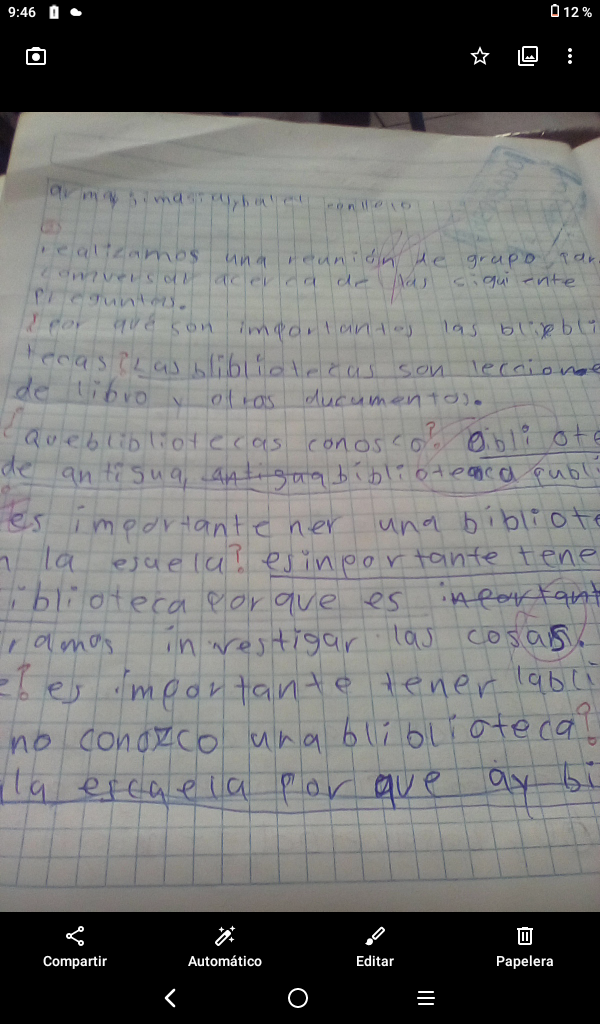 9:46
12 %
realizamos una reunión de grupo par
conversar acerca de las siguiente
preguntas.
¿por qué son importantes las blibli
tecas? Las blibliotecas son leccione
de libro y otros ducumentos.
¿que blibliotecas conosco? abli ote
de antigua, antigua biblioteca publi
es importante ner una bibliote
n la esuela? es inportante tene
iblioteca por que es inportant
ramos investigar las cosas.
e? es importante tener labli
no conozco una bliblioteca?
la escuela por que ay bi
Compartir
Automático
Editar
Papelera